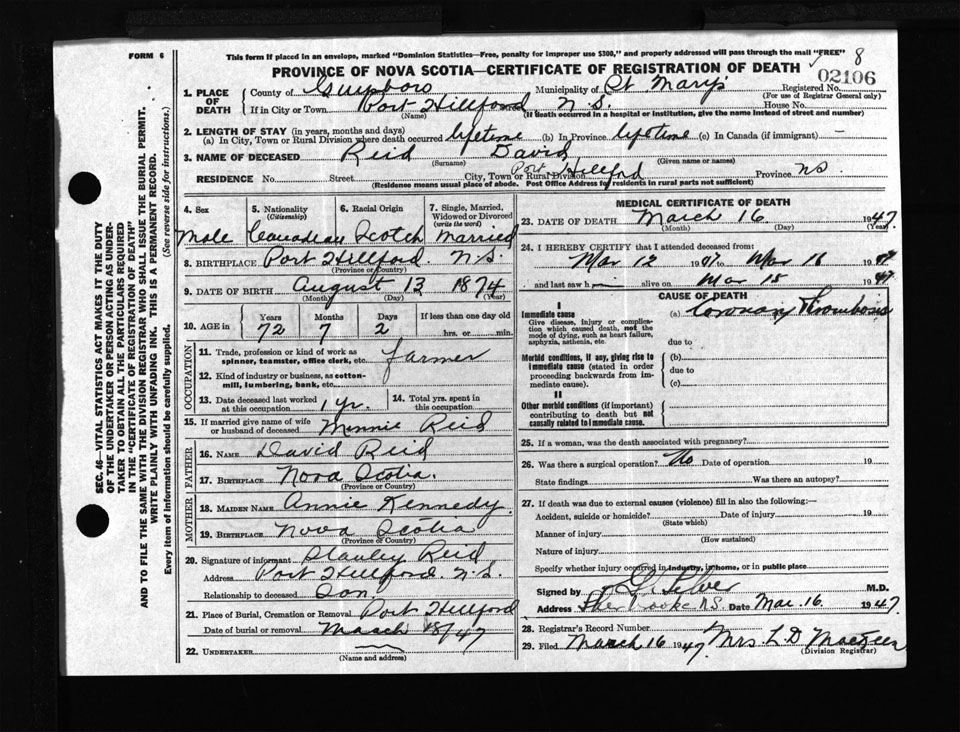 FORM 6
This form if placed in an envelope, marked "Dominion Statistics—Free, penalty for improper use $300," and properly addressed will pass through the mail "FREE"
8
PROVINCE OF NOVA SCOTIA—CERTIFICATE OF REGISTRATION OF DEATH
02106
1. PLACE OF DEATH
County of Guysboro Municipality of St Mary's Registered No.
(For use of Registrar General only)
If in City or Town Port Hillford N.S. House No.
(Name) (If death occurred in a hospital or institution, give the name instead of street and number)
2. LENGTH OF STAY (in years, months and days)
(a) In City, Town or Rural Division where death occurred lifetime (b) In Province lifetime (c) In Canada (if immigrant) —
3. NAME OF DECEASED Reid David
(Surname) (Given name or names)
RESIDENCE No. Street City, Town or Rural Division Port Hillford Province N.S.
(Residence means usual place of abode. Post Office Address for residents in rural parts not sufficient)
4. Sex Male
5. Nationality (Citizenship) Canadian
6. Racial Origin Scotch
7. Single, Married, Widowed or Divorced (write the word) Married
8. BIRTHPLACE Port Hillford. N.S.
(Province or Country)
9. DATE OF BIRTH August 13 1874
(Month) (Day) (Year)
10. AGE in Years 72 Months 7 Days 2 If less than one day old hrs. or min.
OCCUPATION
11. Trade, profession or kind of work as spinner, teamster, office clerk, etc. farmer
12. Kind of industry or business, as cotton-mill, lumbering, bank, etc.
13. Date deceased last worked at this occupation 1 yr.
14. Total yrs. spent in this occupation
15. If married give name of wife or husband of deceased Minnie Reid
FATHER
16. NAME David Reid
17. BIRTHPLACE Nova Scotia.
(Province or Country)
MOTHER
18. MAIDEN NAME Annie Kennedy.
19. BIRTHPLACE Nova Scotia
(Province or Country)
20. Signature of informant Stanley Reid
Address Port Hillford. N.S.
Relationship to deceased Son.
21. Place of Burial, Cremation or Removal Port Hillford
Date of burial or removal March 18/47
22. UNDERTAKER
(Name and address)
MEDICAL CERTIFICATE OF DEATH
23. DATE OF DEATH March 16 1947.
(Month) (Day) (Year)
24. I HEREBY CERTIFY that I attended deceased from:
Mar 12 1947 to Mar 16 1947
and last saw h alive on Mar 15 1947
CAUSE OF DEATH
I
Immediate cause
Give disease, injury or complication which caused death, not the mode of dying, such as heart failure, asphyxia, asthenia, etc.
(a) Coronary Thrombosis
due to
Morbid conditions, if any, giving rise to immediate cause (stated in order proceeding backwards from immediate cause).
(b)
due to
(c)
II
Other morbid conditions (if important) contributing to death but not causally related to immediate cause.
25. If a woman, was the death associated with pregnancy?
26. Was there a surgical operation? No Date of operation 19
State findings Was there an autopsy?
27. If death was due to external causes (violence) fill in also the following:—
Accident, suicide or homicide? Date of injury 19
(State which)
Manner of injury
(How sustained)
Nature of injury
Specify whether injury occurred in industry, in home, or in public place
Signed by M.D.
Address Sherbrooke N.S. Date Mar. 16 1947.
28. Registrar's Record Number
29. Filed March 16 1947. Mrs. L. D.
(Division Registrar)
SEC. 46—VITAL STATISTICS ACT MAKES IT THE DUTY
OF THE UNDERTAKER OR PERSON ACTING AS UNDER-
TAKER TO OBTAIN ALL THE PARTICULARS REQUIRED
IN THE "CERTIFICATE OF REGISTRATION OF DEATH"
AND TO FILE THE SAME WITH THE DIVISION REGISTRAR WHO SHALL ISSUE THE BURIAL PERMIT.
WRITE PLAINLY WITH UNFADING INK. THIS IS A PERMANENT RECORD.
Every item of information should be carefully supplied. (See reverse side for instructions.)